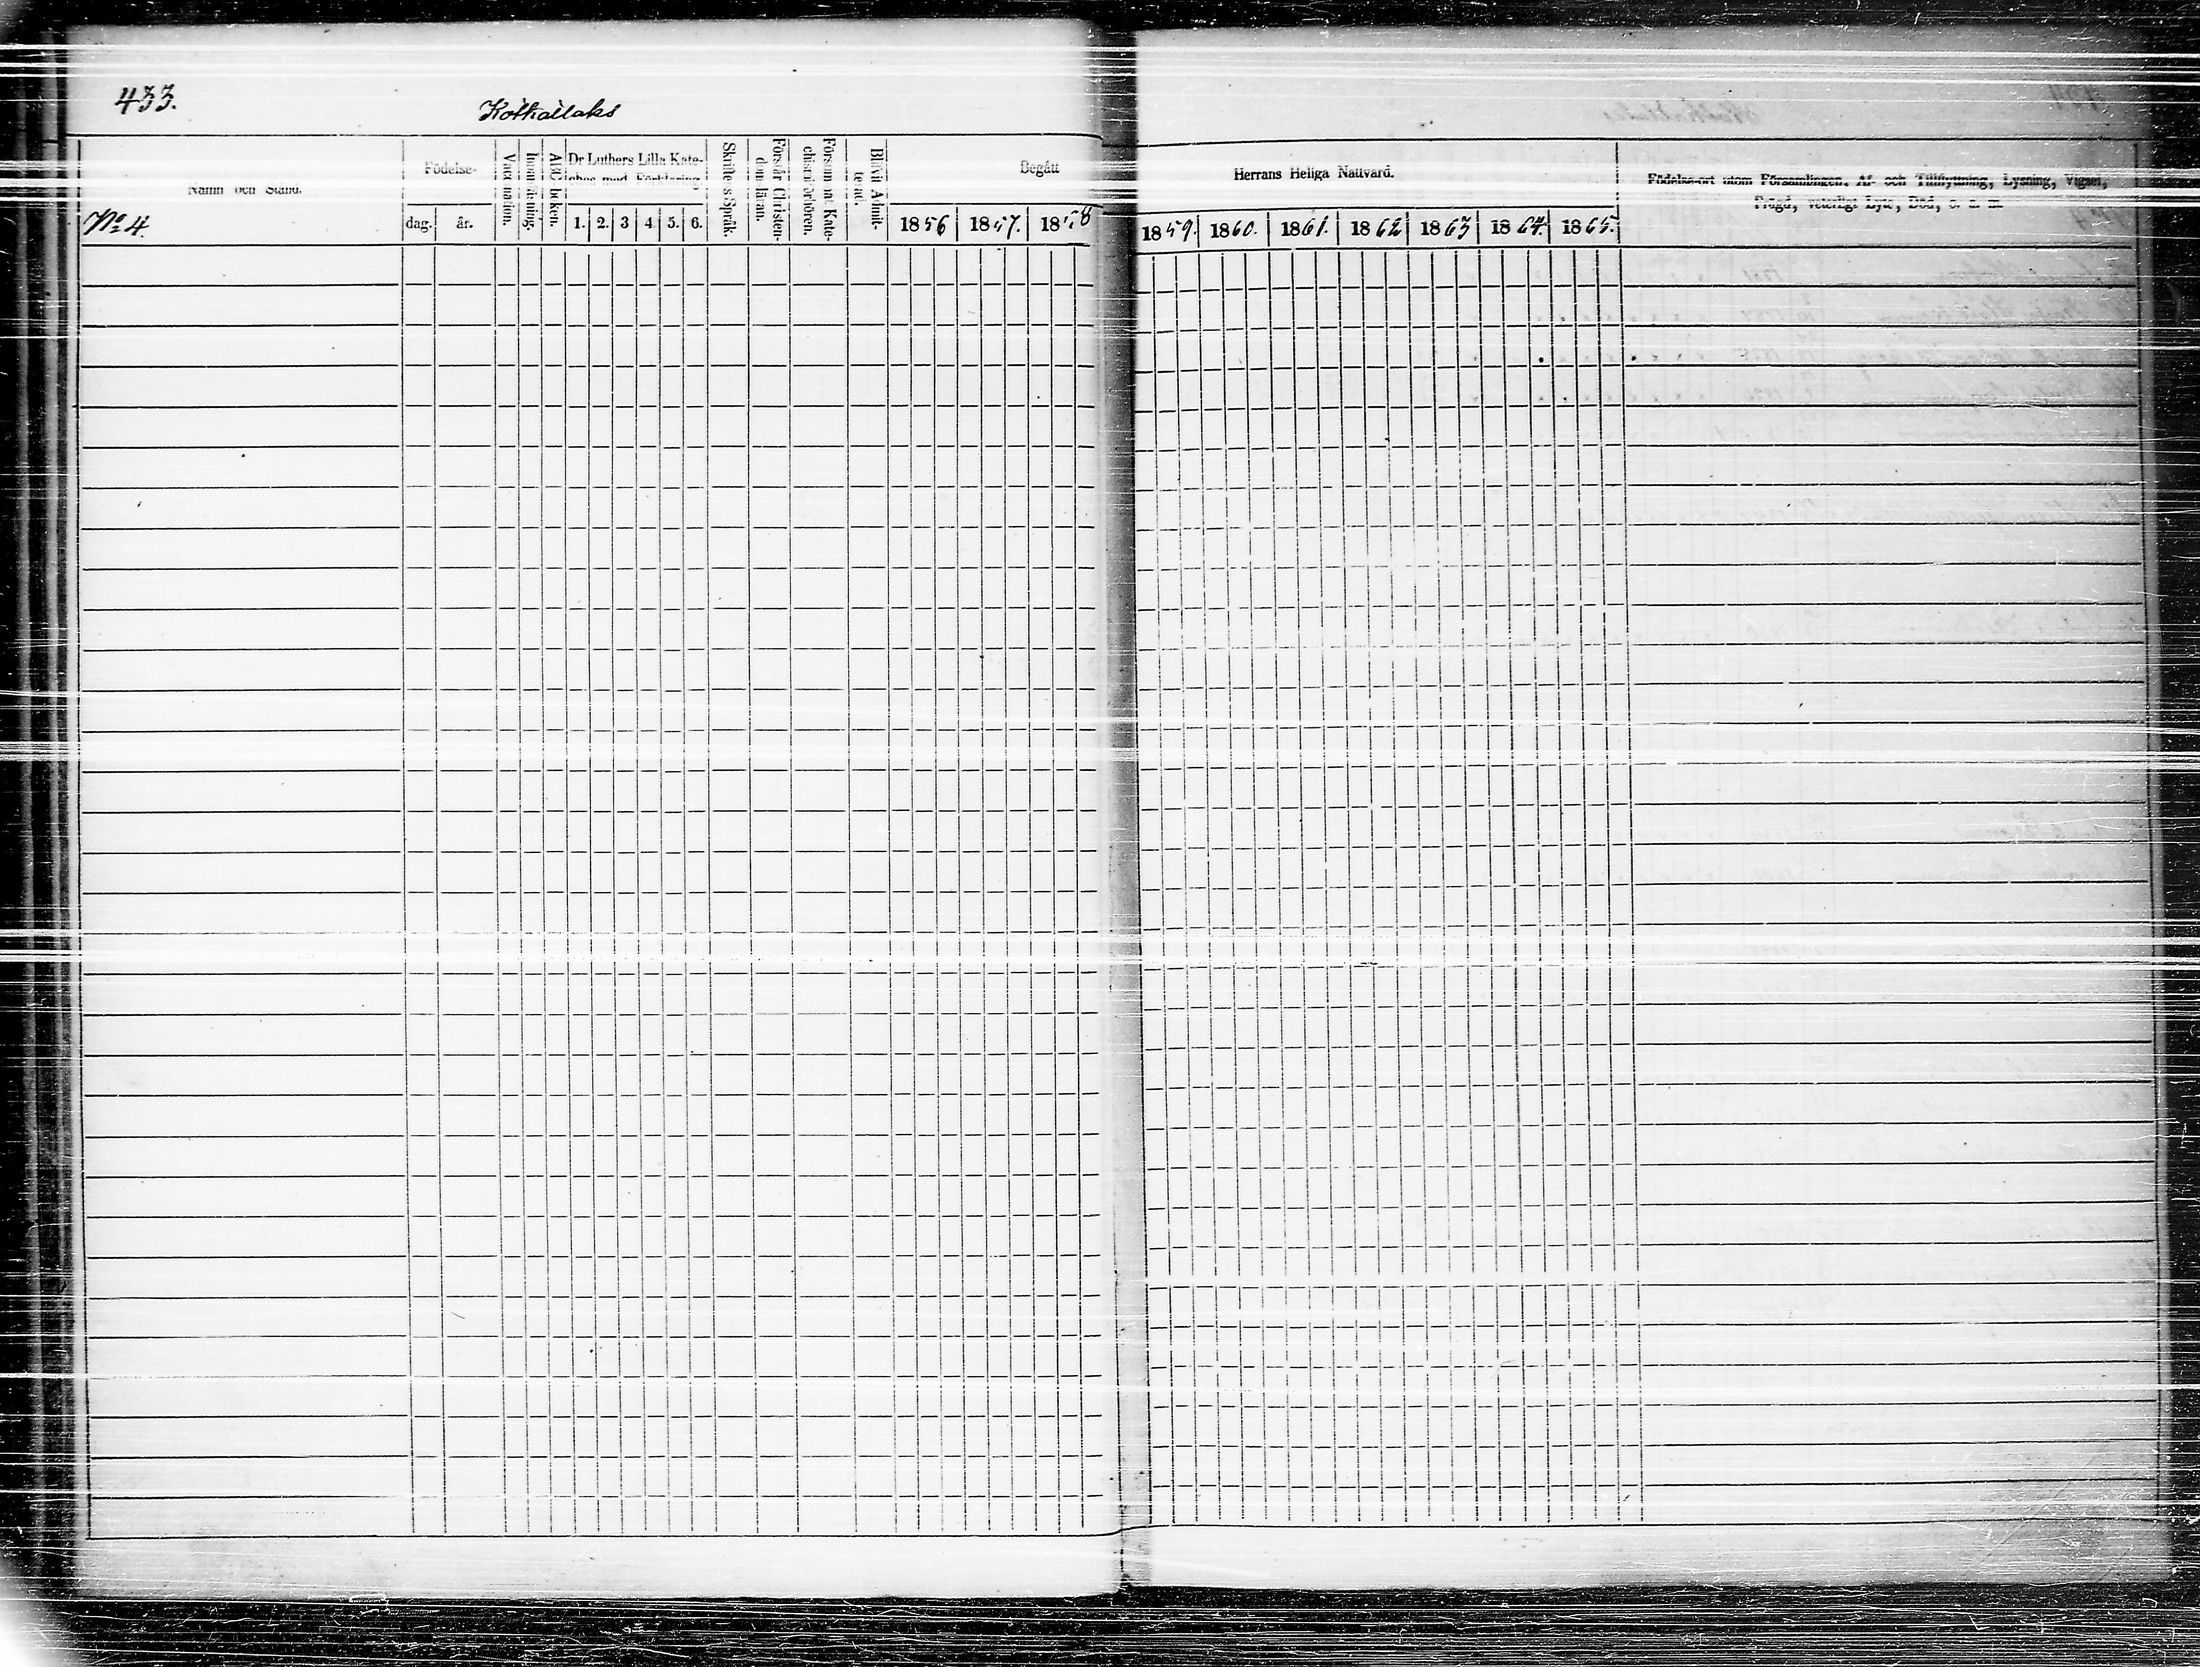 433.
Kötkallaks
Namn och Stånd.
No 4.
Födelse-
dag. år.
Vaccination.
Innanläsning.
ABC boken.
Dr Luthers Lilla Kate-
ches med Förklaring
1. 2. 3 4. 5. 6.
Skriftens Språk.
Förstår Christen-
doms läran.
Försummat Kate-
chismiförhören.
Blifvit Admit-
terad.
Begått
1856 1857. 1858
Herrans Heliga Nattvard.
1859. 1860. 1861. 1862 1863 1864. 1865.
Födelse-ort utom Församlingen, Af- och Tillflyttning, Lysning, Vigsel,
Frägd, veterligt Lyte, Död, o. s. m.